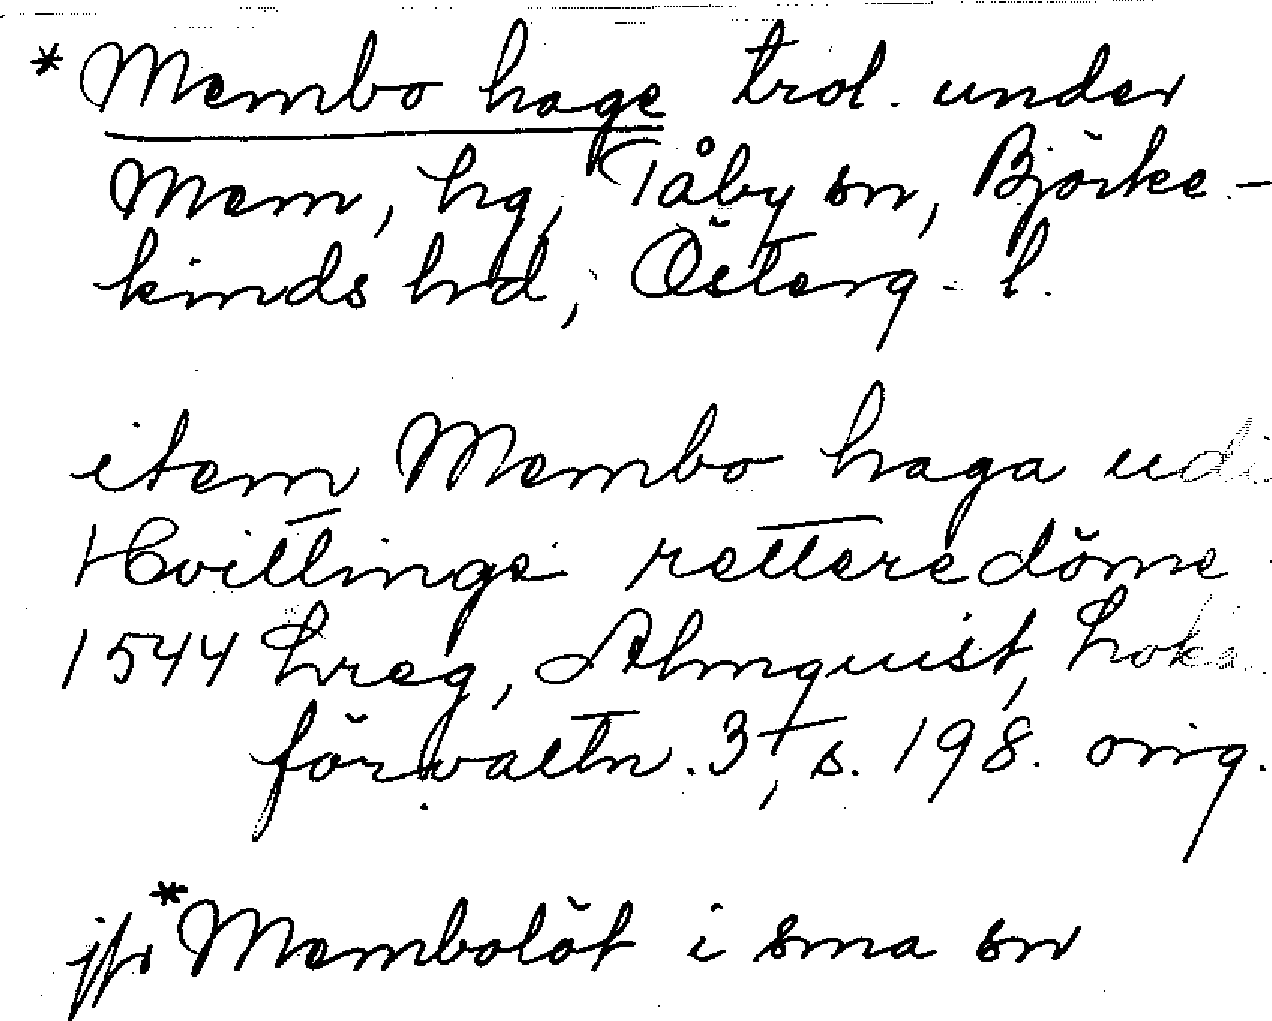 * Membo hage trol. under
Mem, hg, Tåby sn, Björke-
kinds hrd, Österg. l.
item Membo haga udi
Hvittinge retteredöme
1544 hreg, Almquist, Loka
förvaltn. 3, s. 198. orig.
jfr *Membolöt i sma sn